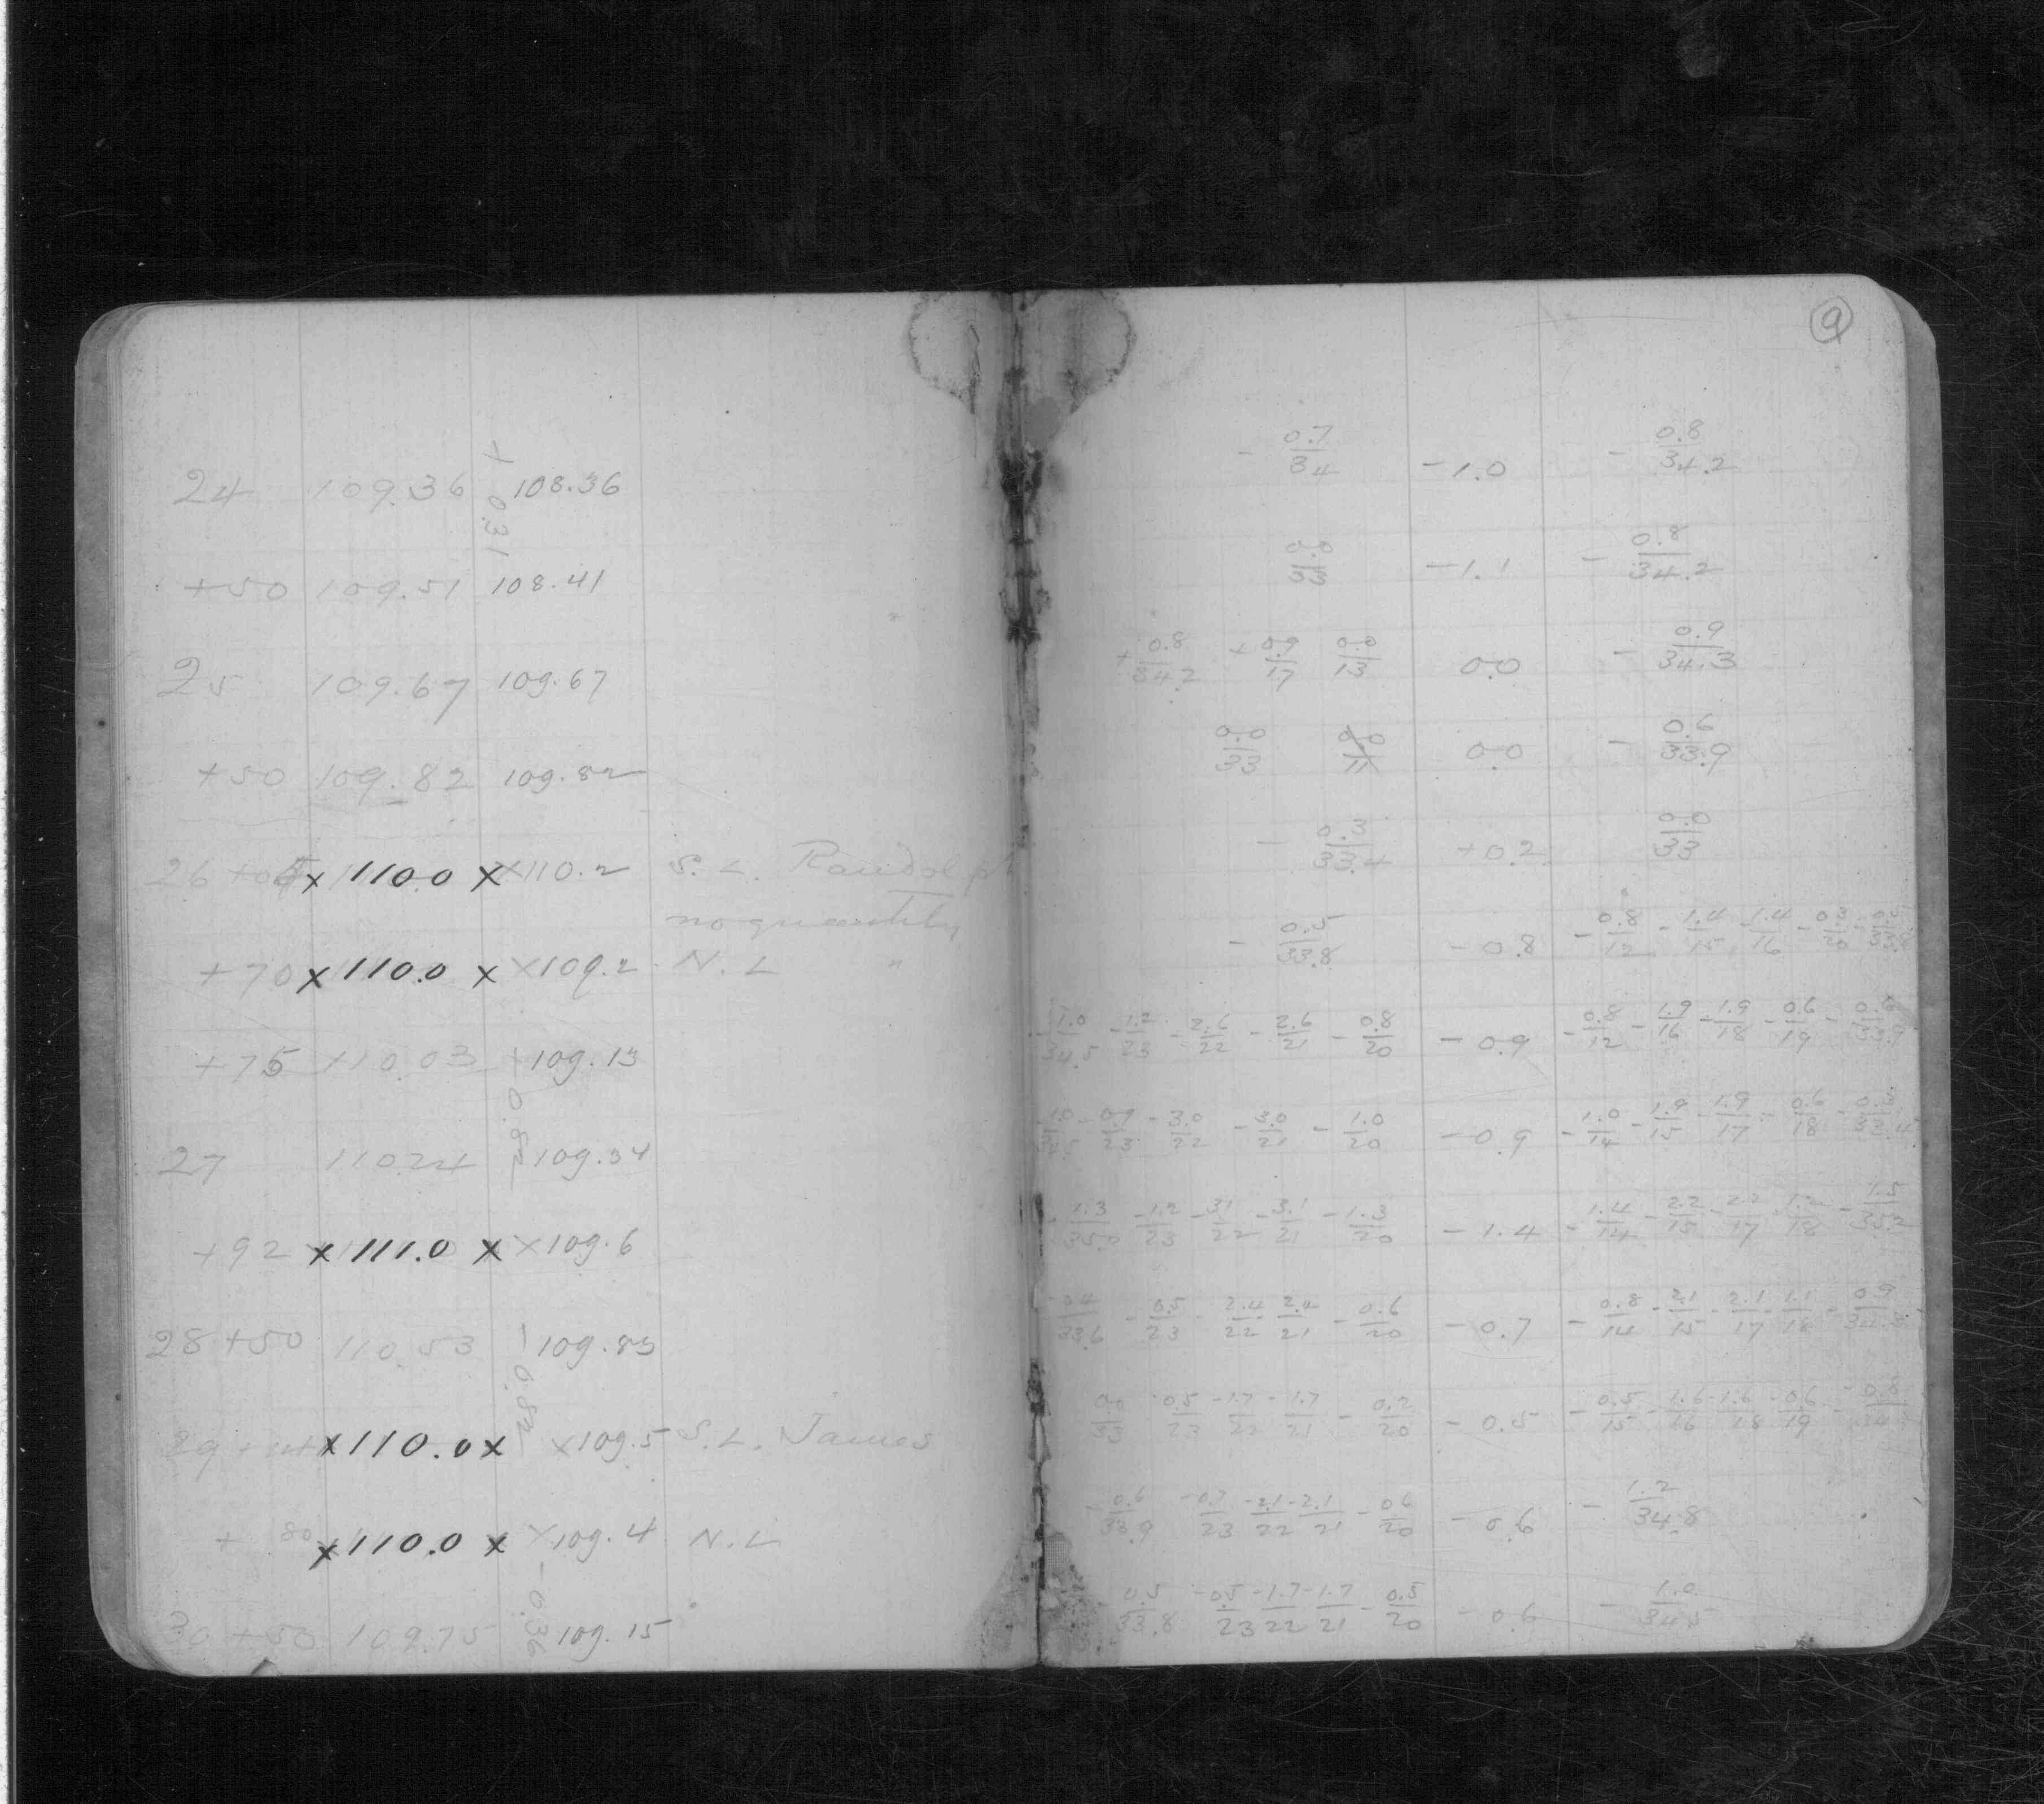 9
24 109.36 108.36
+ 0.31
+50 109.51 108.41
25 109.67 109.67
+50 109.82 109.82
26 x 110.0 x x110.2 S. L. Randolph
no quantity
+70 x 110.0 x x109.2 N. L "
+75 110.03 109.13
0.82
27 110.24 109.34
+92 x 111.0 x x109.6
28+50 110.53 109.83
- 0.82
29+ x 110.0 x x109.5 S. L. James
+ 80 x 110.0 x x109.4 N. L
- 0.36
30+50 109.75 109.15
- 0.7/34 -1.0 - 0.8/34.2
0.0/33 -1.1 - 0.8/34.2
+ 0.8/34.2 + 0.9/17 0.0/13 0.0 - 0.9/34.3
0.0/33 0.0/11 0.0 - 0.6/33.9
- 0.3/33.4 +0.2 0.0/33
- 0.5/33.8 -0.8 - 0.8/12 - 1.4/15 - 1.4/16 - 0.3/20
- 1.0/34.5 - 1.2/23 - 2.6/22 - 2.6/21 - 0.8/20 -0.9 - 0.8/12 - 1.9/16 - 1.9/18 - 0.6/19
- 0.9/23 - 3.0/22 - 3.0/21 - 1.0/20 -0.9 - 1.0/14 - 1.9/15 - 1.9/17 - 0.6/18
- 1.3/35.0 - 1.2/23 - 3.1/22 - 3.1/21 - 1.3/20 -1.4 - 1.4/14 - 2.2/15 - 2.2/17 - 1.2/18 - 1.5/35.2
0.4/33.6 - 0.5/23 - 2.4/22 2.4/21 - 0.6/20 -0.7 - 0.8/14 - 2.1/15 - 2.1/17 - 1.1/18 - 0.9/34.3
0.0/33 - 0.5/23 - 1.7/22 - 1.7/21 - 0.2/20 -0.5 - 0.5/15 - 1.6/16 - 1.6/18 - 0.6/19
- 0.6/33.9 - 0.7/23 - 2.1/22 - 2.1/21 - 0.6/20 -0.6 - 1.2/34.8
0.5/33.8 - 0.5/23 - 1.7/22 - 1.7/21 - 0.5/20 -0.6 - 1.0/34.5